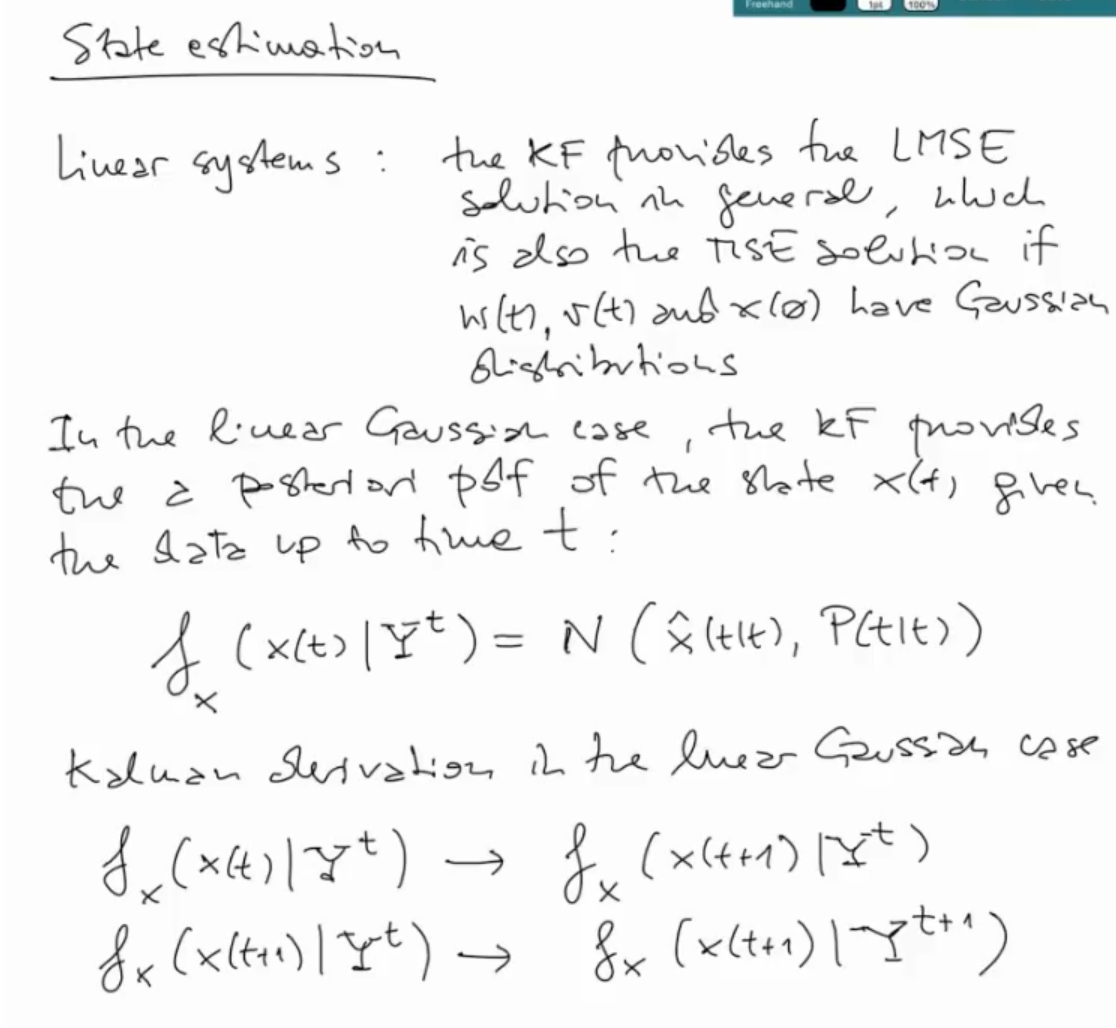 Freehand 1pt 100%
State estimation
Linear systems : the KF provides the LMSE
solution in general, which
is also the MSE solution if
w(t), v(t) and x(0) have Gaussian
distributions
In the linear Gaussian case, the KF provides
the a posteriori pdf of the state x(t), given
the data up to time t :
f_x (x(t)|Y^t) = N (x̂(t|t), P(t|t))
Kalman derivation in the linear Gaussian case
f_x (x(t)|Y^t) → f_x (x(t+1)|Y^t)
f_x (x(t+1)|Y^t) → f_x (x(t+1)|Y^{t+1})